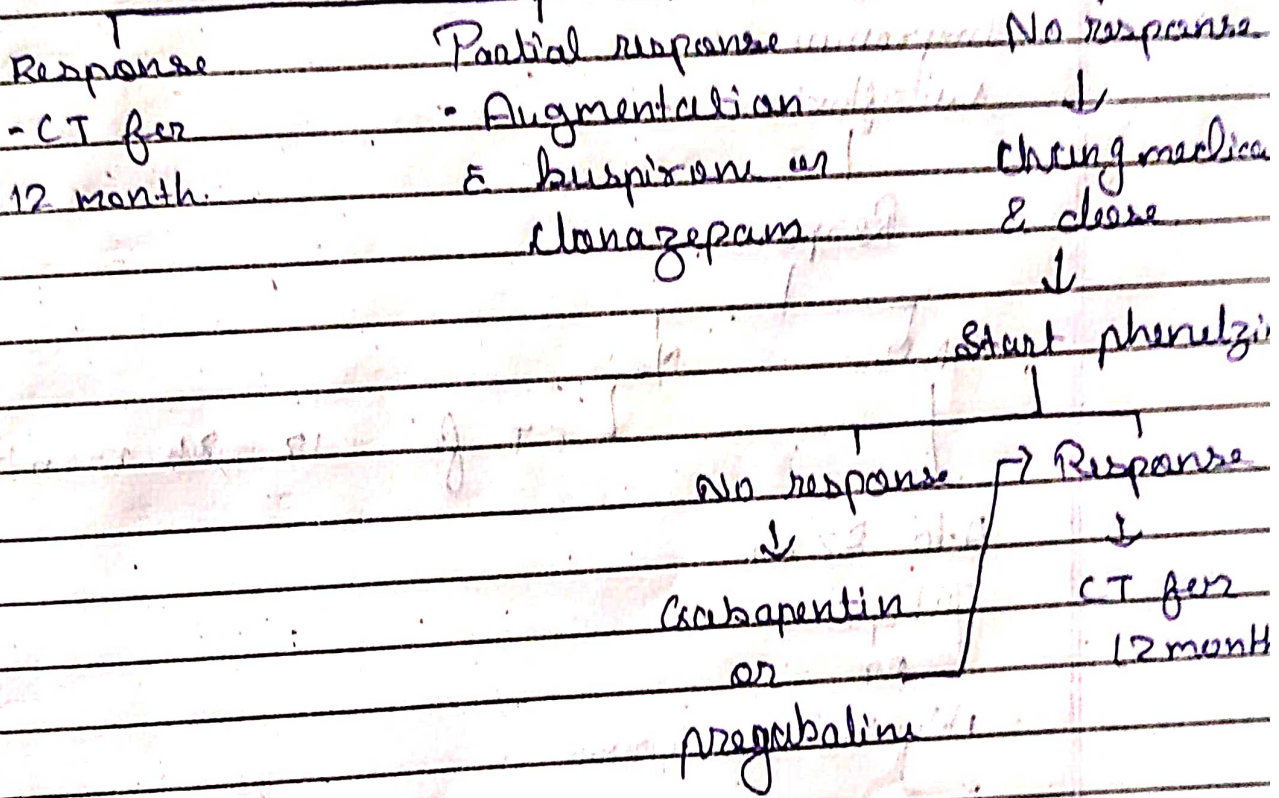 Response
- CT for
12 month.
Partial response
- Augmentation
c̄ buspirone or
clonazepam
No response
↓
Chang medica
& dose
↓
Start phenelzi
No response
↓
Gabapentin
or
pregabaline
→ Response
↓
CT for
12 month